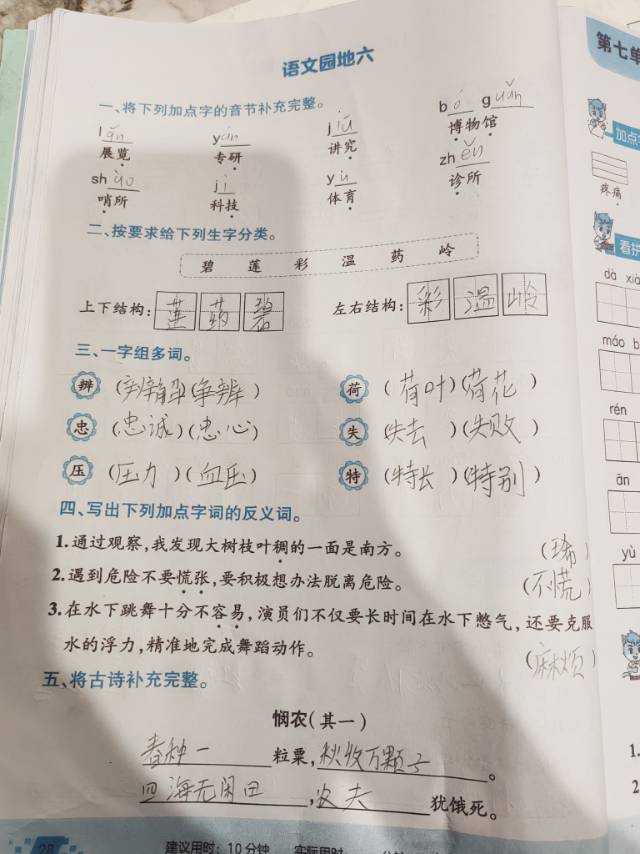 语文园地六
第七单
一、将下列加点字的音节补充完整。
lǎn yán jiū bó guǎn
展览 专研 讲究 博物馆
shào jì yù zhěn
哨所 科技 体育 诊所
二、按要求给下列生字分类。
碧 莲 彩 温 药 岭
上下结构: 莲 药 碧 左右结构: 彩 温 岭
三、一字组多词。
辨 (分辨)(争辨) 荷 (荷叶)(荷花)
忠 (忠诚)(忠心) 失 (失去)(失败)
压 (压力)(血压) 特 (特长)(特别)
四、写出下列加点字词的反义词。
1.通过观察,我发现大树枝叶稠的一面是南方。 (稀)
2.遇到危险不要慌张,要积极想办法脱离危险。 (不慌)
3.在水下跳舞十分不容易,演员们不仅要长时间在水下憋气,还要克服
水的浮力,精准地完成舞蹈动作。
(麻烦)
五、将古诗补充完整。
悯农(其一)
春种一粒粟,秋收万颗子。
四海无闲田,农夫犹饿死。
28 建议用时: 10分钟 实际用时:
加点
疼痛
看拼
dà xià
máo b
rén
ān
yù
1.
2